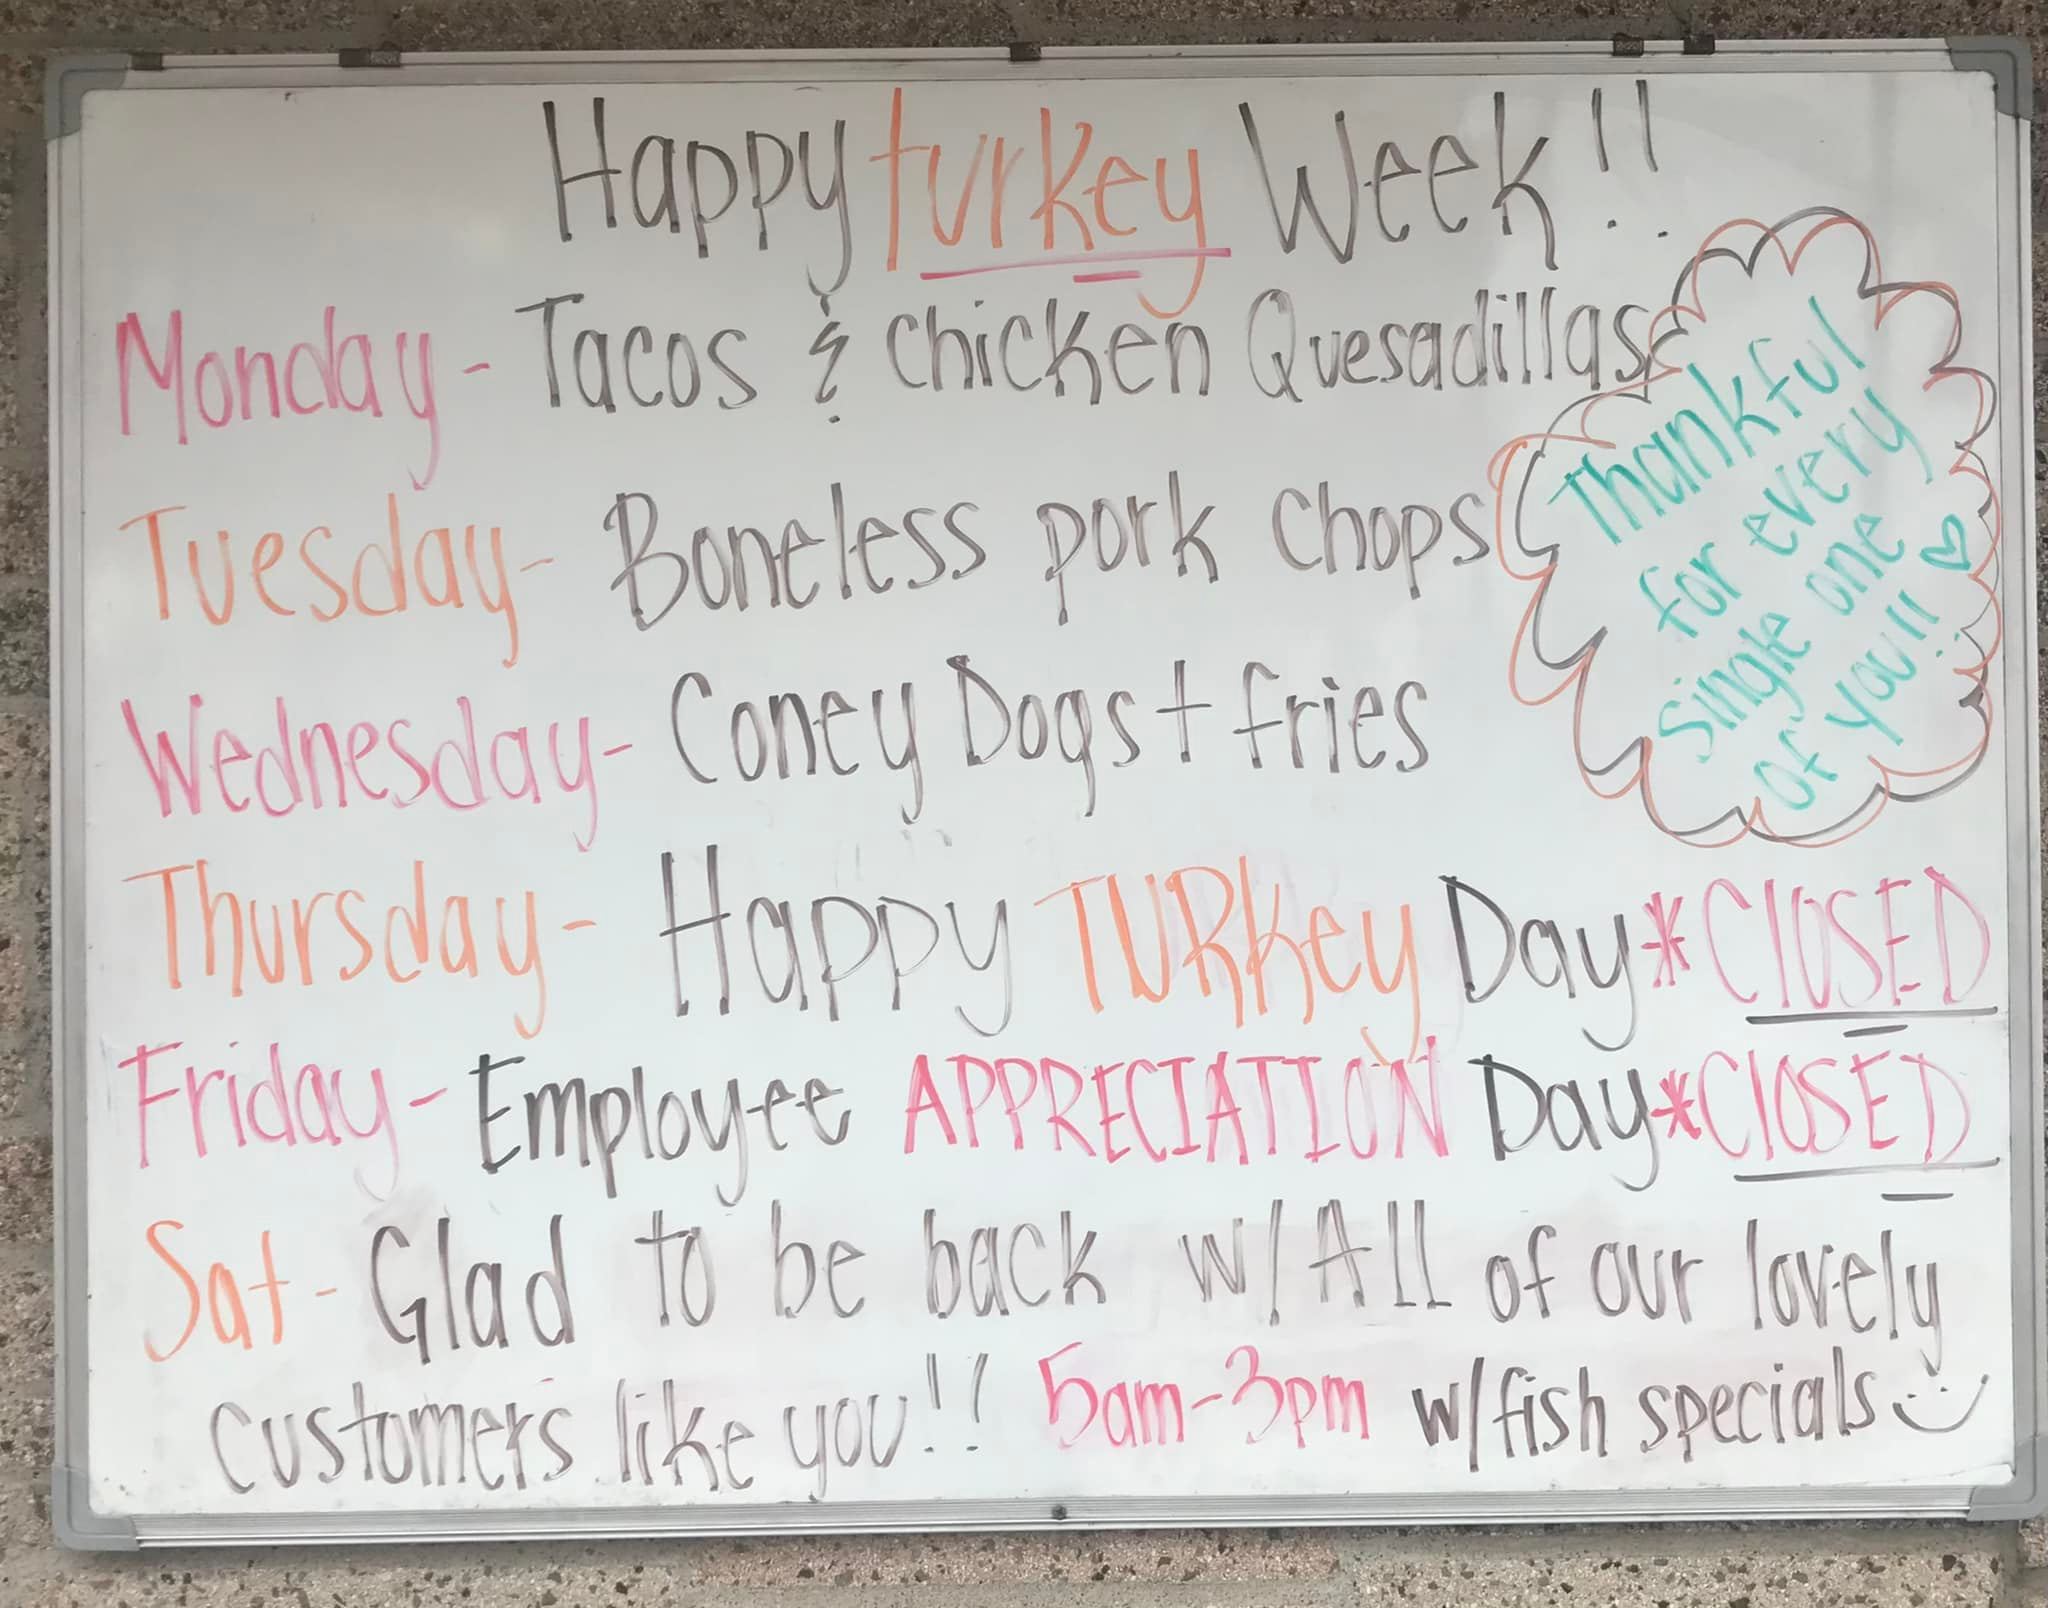 Happy turkey Week!!
Monday - Tacos & Chicken Quesadillas
Tuesday - Boneless pork Chops
Wednesday - Coney Dogs + fries
Thursday - Happy TURKey Day *ClOSED
Friday - Employee APPRECIATION Day *ClOSED
Sat - Glad to be back w/ All of our lovely
customers like you!! 5am-3pm w/fish specials
Thankful
for every
single one
of you!!